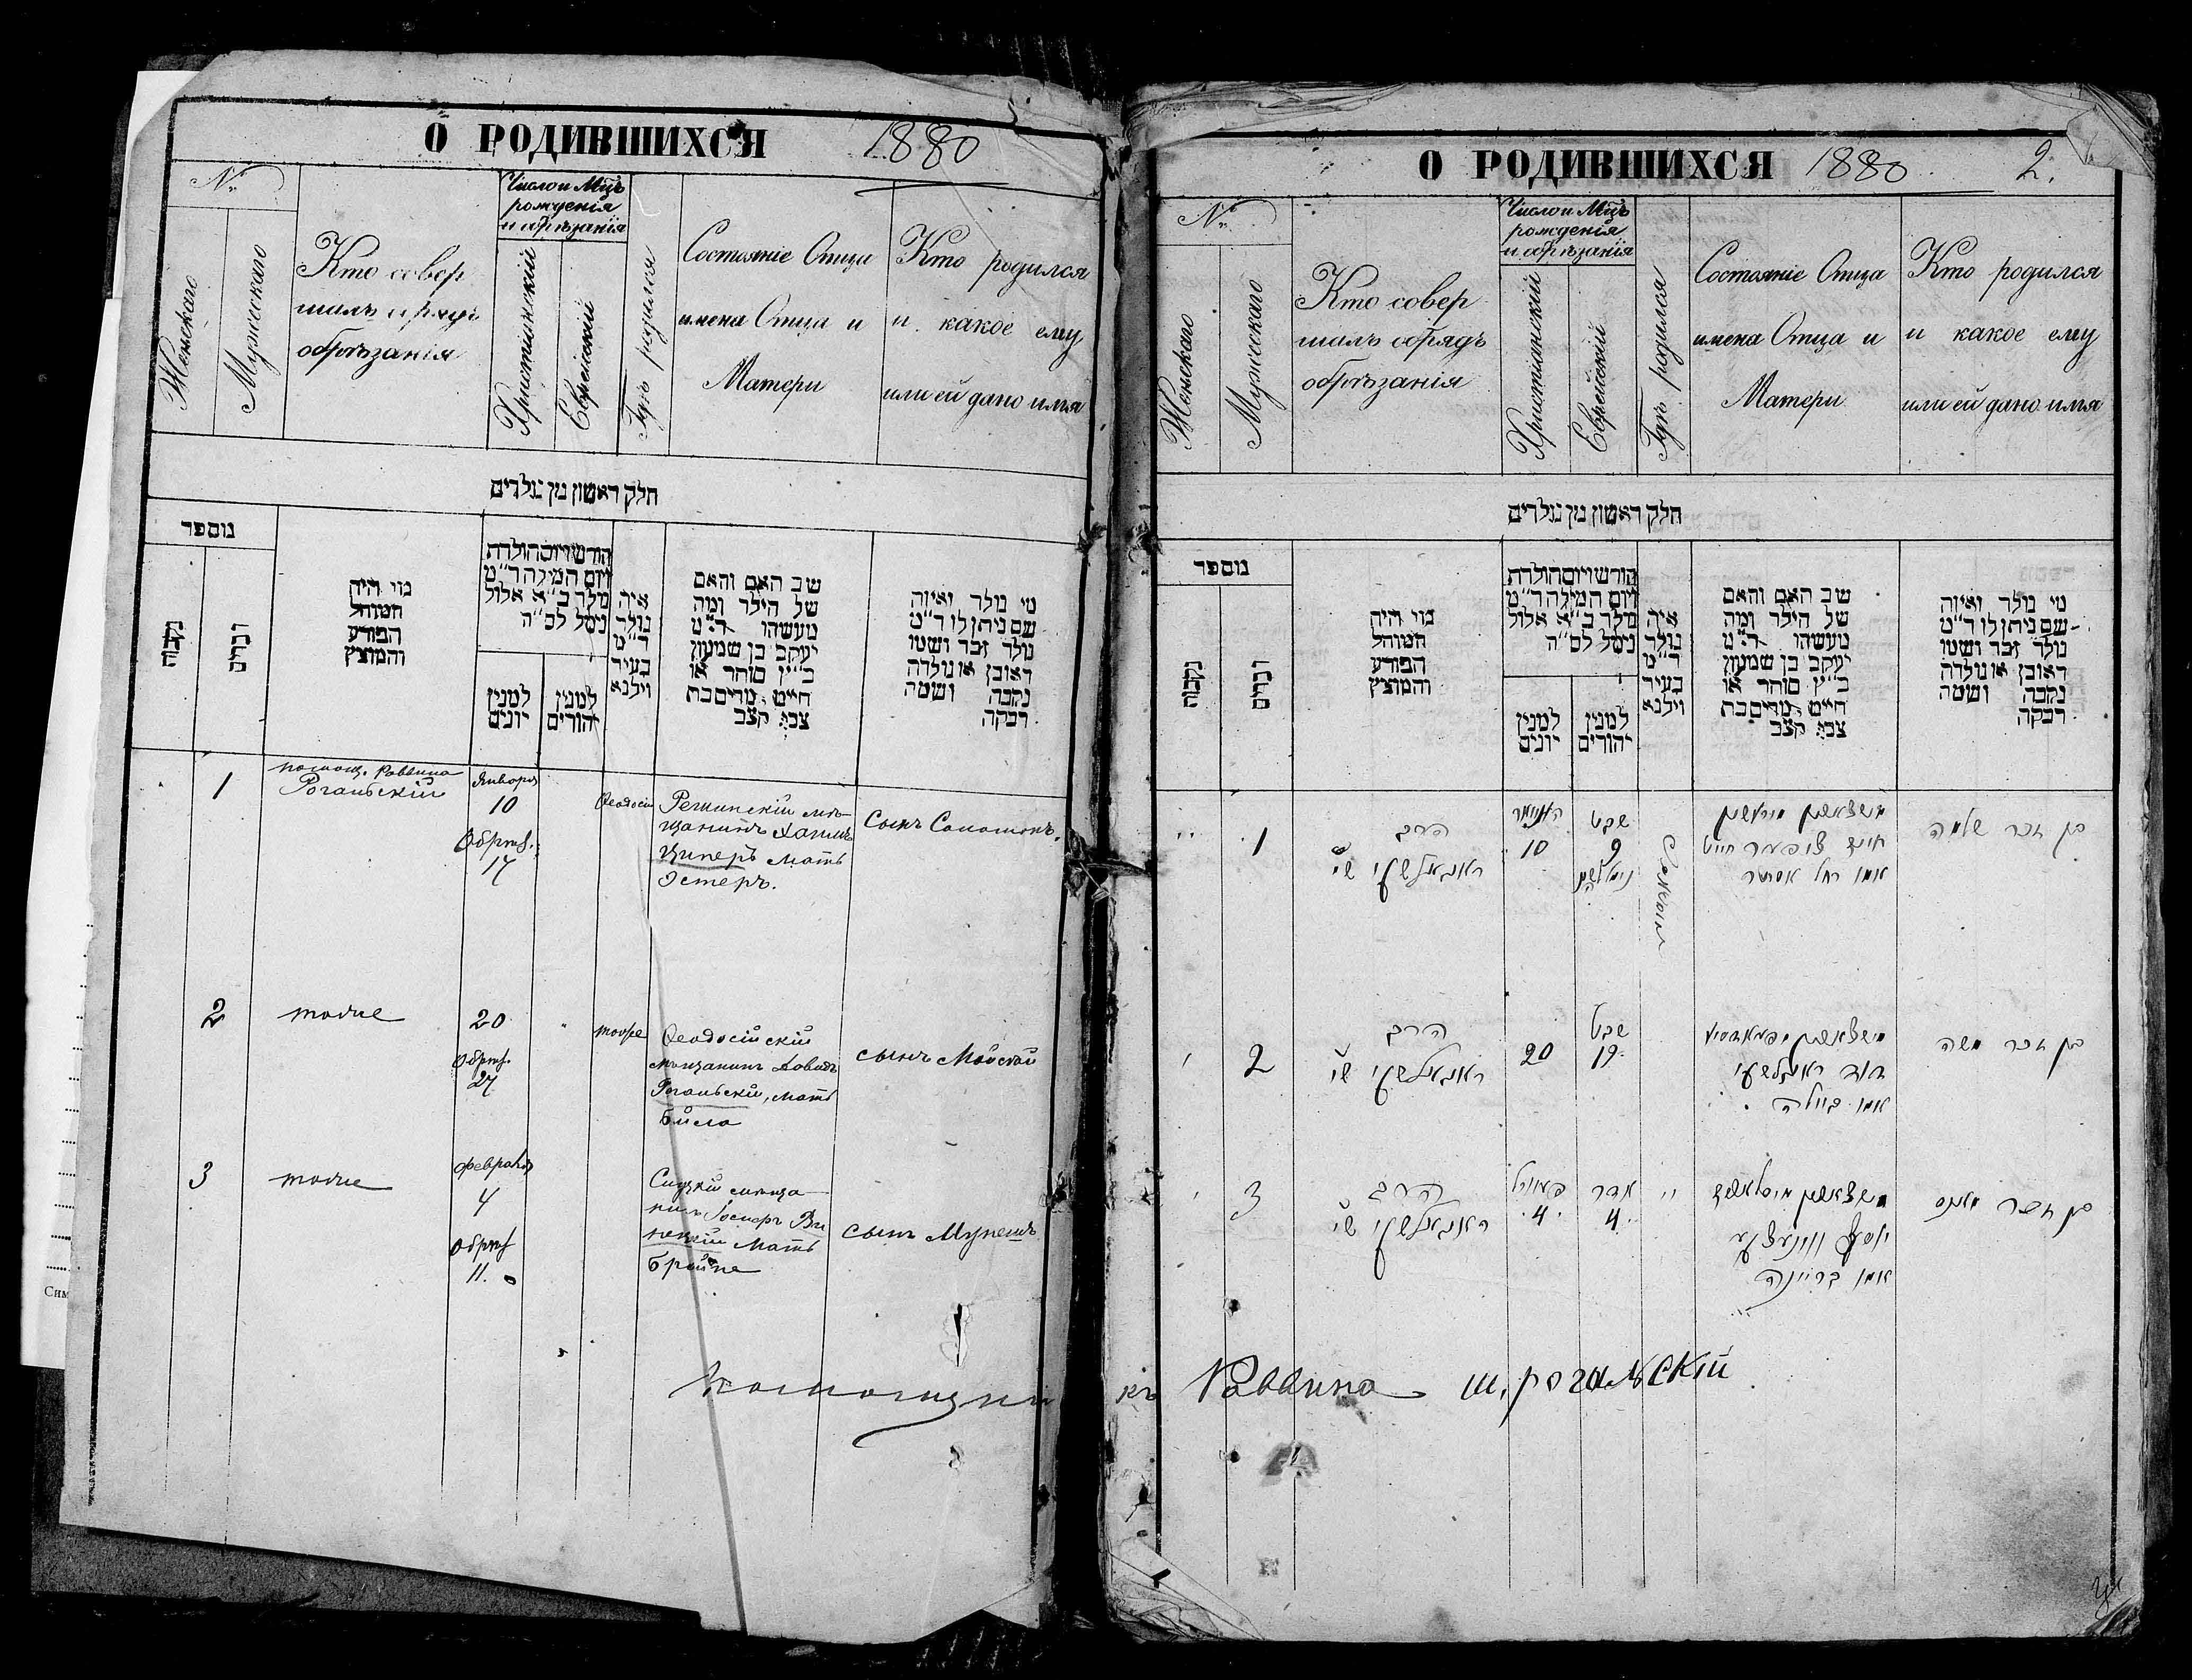 О РОДИВШИХСЯ 1880
№
Женскаго
Мужескаго
Кто совер
шалъ обрядъ
обрѣзанія
Число и Мцъ
рожденія
и обрѣзанія
Христіанскій
Еврейскій
Гдѣ родился
Состояніе Отца
имена Отца и
Матери
Кто родился
и какое ему
или ей дано имя
חלק ראשון מן נולדים
מוספר
נקבות
זכרים
מי היה
המוהל
הפורע
והמוצץ
חורש ויום הולדת
ויום המילה ד״מ
נולד ב״א אלול
נימל לס״ה
למנין
יונים
למנין
יהודים
איה
נולד
ד״מ
בעיר
וילנא
שב האם והאם
של הילד ומה
מעשהו ד״מ
יעקב בן שמעון
כ״ץ סוחר או
חייט מרים בת
צבי קצב
מי נולד ואיזה
שם ניתן לו ד״מ
נולד זכר ושמו
ראובן או נולדה
נקבה ושמה
רבקה
1
помощ. Раввина
Рогальскій
Января
10
Обрѣз.
17
Ѳеодосіи
мѣ-
щанинъ Хаимъ
Циперъ мать
Эстеръ.
Сынъ Соломонъ.
2
тоже
20
Обрѣз.
27
тоже
Ѳеодосійскій
мѣщанинъ Давидъ
Рогальскій, мать
Бейла
сынъ Мойсей
3
тоже
февраля
4
обрѣз
11.
мѣща
нинъ Іосифъ Ви
нецкій мать
Брайна
сынъ
Помощни
О РОДИВШИХСЯ 1880 2.
№
Женскаго
Мужескаго
Кто совер
шалъ обрядъ
обрѣзанія
Число и Мцъ
рожденія
и обрѣзанія
Христіанскій
Еврейскій
Гдѣ родился
Состояніе Отца
имена Отца и
Матери
Кто родился
и какое ему
или ей дано имя
חלק ראשון מן נולדים
מוספר
נקבות
זכרים
מי היה
המוהל
הפורע
והמוצץ
חורש ויום הולדת
ויום המילה ד״מ
נולד ב״א אלול
נימל לס״ה
למנין
יונים
למנין
יהודים
איה
נולד
ד״מ
בעיר
וילנא
שב האם והאם
של הילד ומה
מעשהו ד״מ
יעקב בן שמעון
כ״ץ סוחר או
חייט מרים בת
צבי קצב
מי נולד ואיזה
שם ניתן לו ד״מ
נולד זכר ושמו
ראובן או נולדה
נקבה ושמה
רבקה
1
הרב
ראגאלסקי
10
שבט
9
חיים ציפער חייט
אמו רחל אסתר
בן זכר שלמה
2
הרב
ראגאלסקי
20
שבט
19
דוד ראגאלסקי
אמו ביילה
בן זכר משה
3
הרב
ראגאלסקי
4
אדר
4
יוסף
אמו בריינה
בן זכר
къ Раввина Ш. Рогальскій